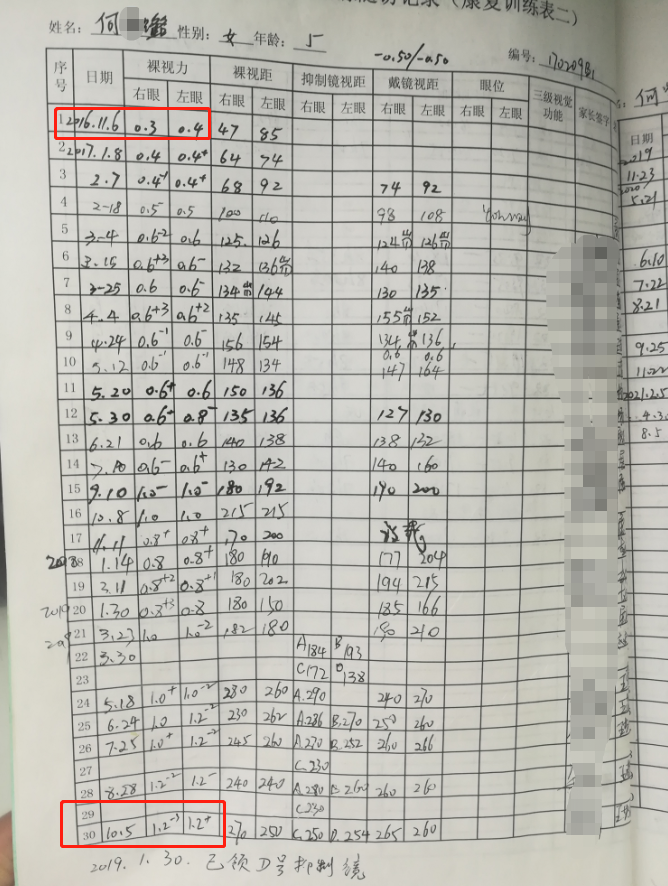 记录(康复训练表二)
姓名: 何 性别: 女 年龄: 5 编号: 170209B1
-0.50/-0.50
序号 日期 裸视力 裸视距 抑制镜视距 戴镜视距 眼位 三级视觉功能 家长签字
右眼 左眼 右眼 左眼 右眼 左眼 右眼 左眼 右眼 左眼
1 2016.11.6 0.3 0.4 47 85
2 2017.1.8 0.4 0.4+ 64 74
3 2.7 0.4-1 0.4+ 68 92 74 92
4 2-18 0.5 0.5 100 110 98 108
5 3-4 0.6-2 0.6 125. 126 124 126
6 3.15 0.6+3 0.6- 132 136 140 138
7 3-25 0.6 0.6- 134 144 130 135
8 4.4 0.6+3 0.6+2 135 145 155 152
9 4.24 0.6-1 0.6- 156 154 134 136
0.6 0.6
10 5.12 0.6-1 0.6-1 148 134 147 164
11 5.20 0.6+ 0.6 150 136
12 5.30 0.6+ 0.8- 135 136 127 130
13 6.21 0.6 0.6 140 138 138 132
14 7.10 0.6- 0.6+ 130 142 140 160
15 9.10 1.0- 1.0- 180 192 190 200
16 10.8 1.0 1.0 215 215
17 11.11 0.8+ 0.8+ 170 200 没戴
18 1.14 0.8 0.8+ 180 190 177 204
19 3.11 0.8+2 0.8+1 180 202 194 215
2019 20 1.30 0.8+3 0.8 180 150 185 166
21 3.23 1.0 1.0-2 182 180 190 210
22 3.30 A184 B193
23 C172 D138
24 5.18 1.0+ 1.0-2 280 260 A.290 240 270
25 6.24 1.0 1.2-2 230 262 A.286 B.270 250 260
26 7.25 1.0+ 1.2-2 245 260 A.270 B.252 260 266
27 C.230
28 8.28 1.2-2 1.2- 240 240 A.280 260 260 260
29 C230
30 10.5 1.2-3 1.2+ 270 250 C.250 D.254 265 260
2019.1.30.已领D号抑制镜
日期
2019
11.23
2020
5.21
6.10
7.22
8.21
9.25
11.22
2021.2.5
4.3
8.5